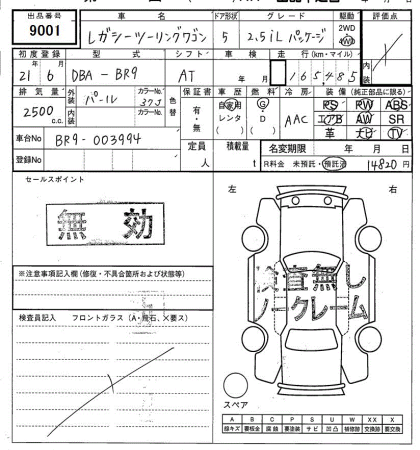 出品番号 車名 ドア形状 グレード 駆動 評価点
9001 レガシーツーリングワゴン 5 2.5iL パッケージ 2WD 4WD
初度登録 型式 シフト 車検 走行(km・マイル)
21年 6月 DBA-BR9 AT 年 月 165485
排気量 外装 パール カラーNo. 37J 色替 保証書 車歴 燃料 冷房 装備(純正部品に限る)
2500 c.c. 内装 カラーNo. 有・無 自家用 レンタ ( ) G・D ( ) AAC PS PW ABS
エアB AW SR
革 ナビ TV
車台No BR9-003994 定員 人 積載量 t 名変期限 年 月 日
登録No R料金 未預託・預託済 14820円
セールスポイント
無効
左 右
※注意事項記入欄(修復・不具合箇所および状態等)
検査無し
ノークレーム
検査員記入 フロントガラス(A・飛石、×要ス)
スペア
A B C P S U W X XX
線キズ 要板金 腐蝕 要塗装 サビ 凹凸 補修跡 要交換 交換跡